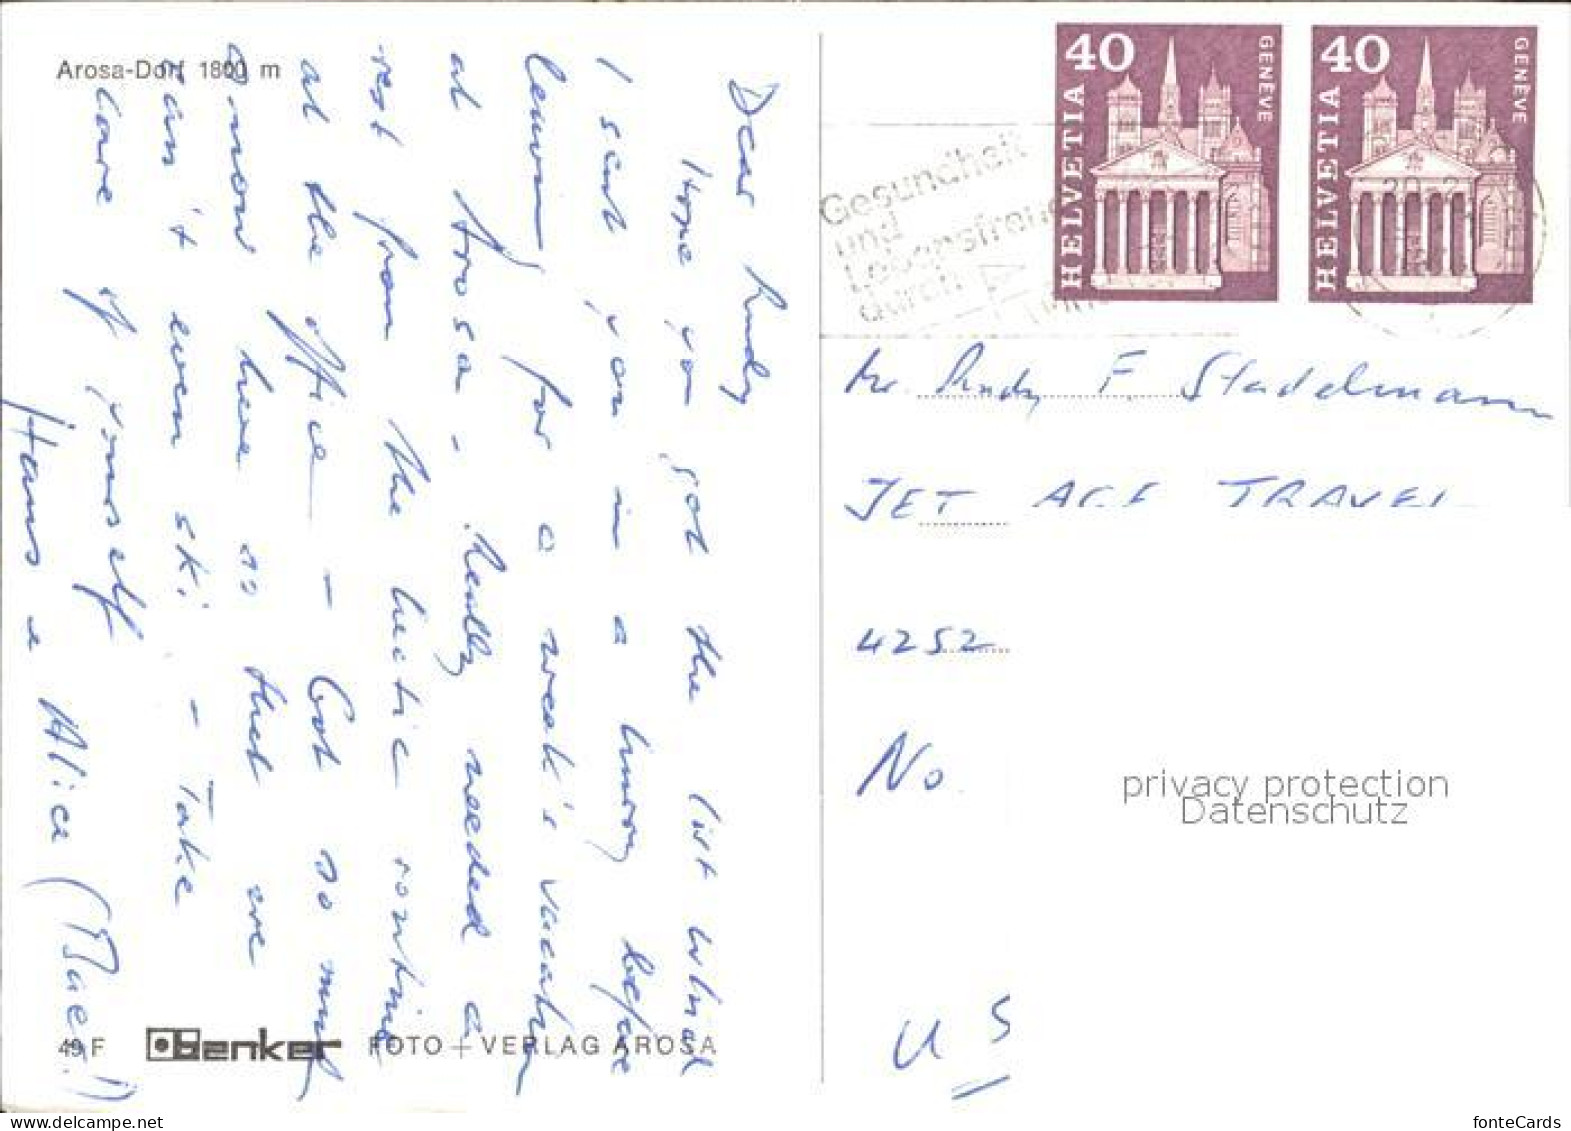 Arosa-Dorf 1800 m
Dear Rudy
Hope you got the list which
I sent you in a hurry before
leaving for a week's vacation
at Arosa - Really needed a
rest from the hectic routine
at the office - Got so much
snow here so that we
can't even ski - Take
care of yourself
Hans & Alice
49 F
Benker FOTO + VERLAG AROSA
40 HELVETIA GENÈVE
40 HELVETIA GENÈVE
Gesundheit
und
Lebensfreude
durch
Mr. Rudy F. Stadelmann
JET AGE TRAVEL
4252
No.
U S
privacy protection
Datenschutz
fonteCards